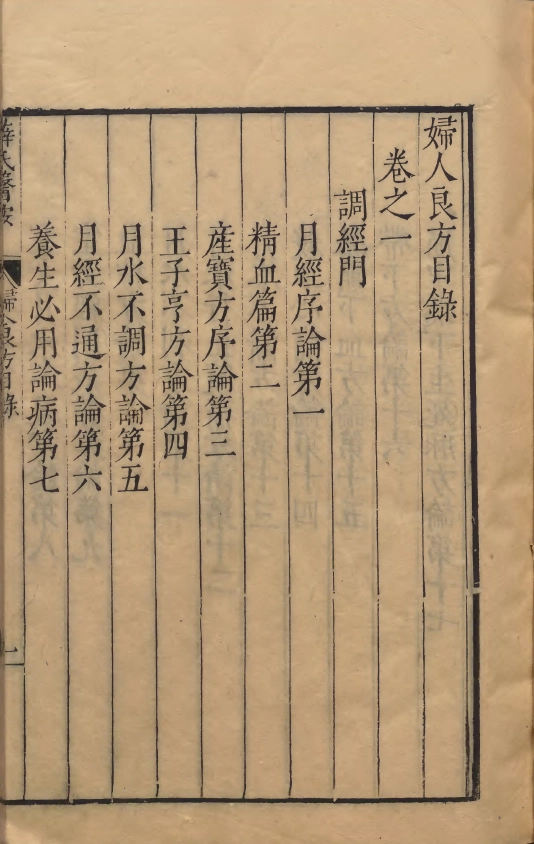 婦人良方目錄
卷之一
調經門
月經序論第一
精血篇第二
産寶方序論第三
王子亨方論第四
月水不調方論第五
月經不通方論第六
養生必用論病第七
薛氏醫按
婦人良方目錄
一